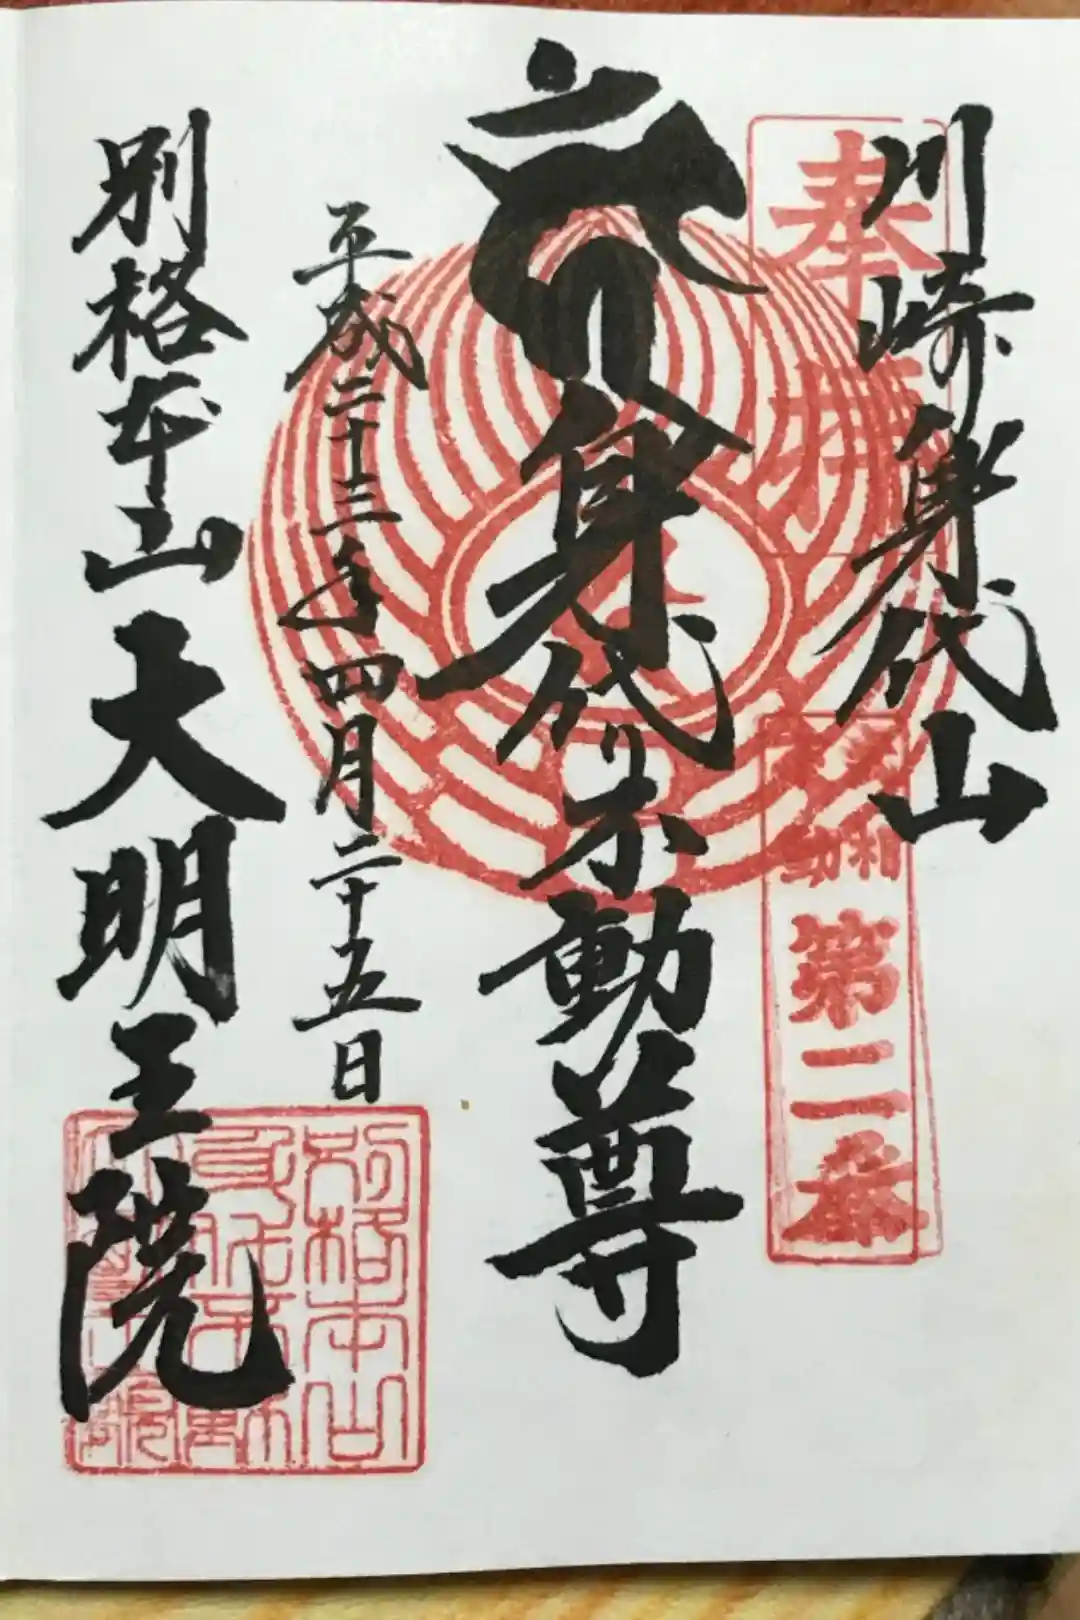 川崎身代山
奉拝
関東三十六
不動
第二番
身代り不動尊
平成二十三年四月二十五日
別格本山大明王院
別格本山
身代不動